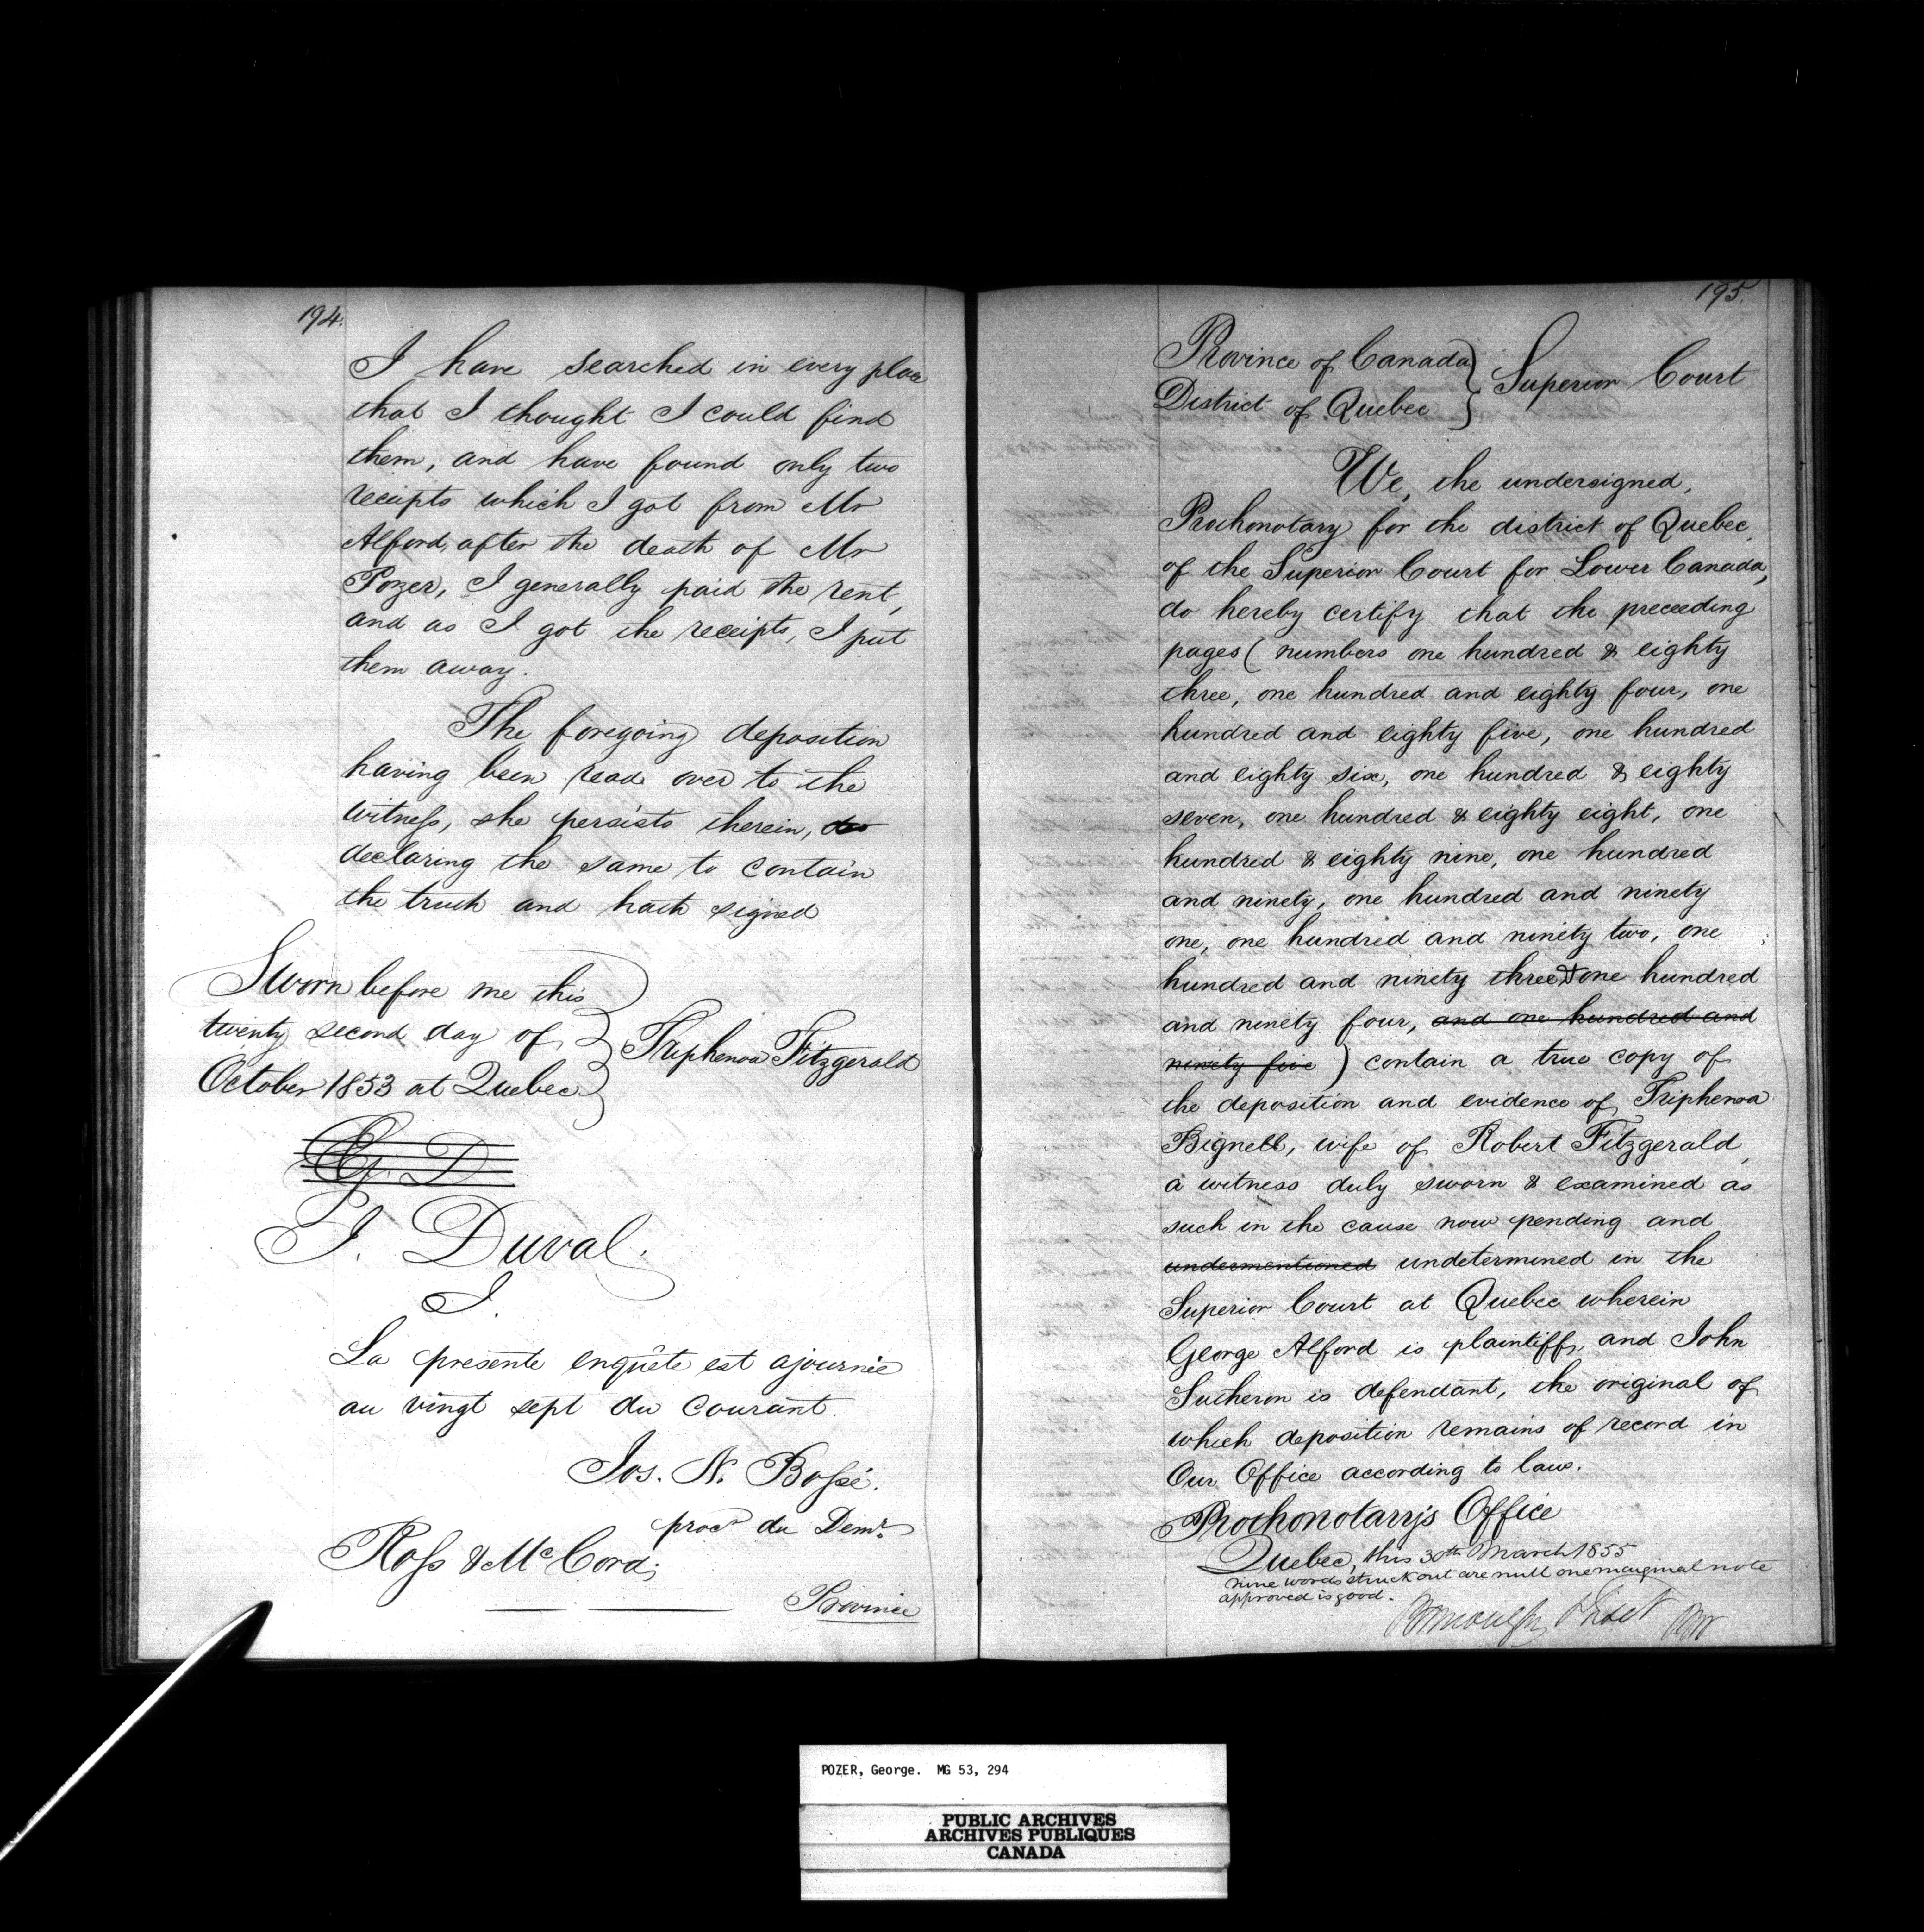 194.
I have searched in every place
that I thought I could find
them, and have found only two
receipts which I got from Mr
Alford, after the death of Mr
Pozer, I generally paid the rent,
and as I got the receipts, I put
them away.
The foregoing deposition
having been read over to the
witness, she persists therein, de
declaring the same to contain
the truth and hath signed
Sworn before me this
twenty second day of
October 1853 at Quebec
Triphena Fitzgerald
G. D
J. Duval.
J.
La presente enquête est ajournée
au vingt sept du Courant.
Jos. N. Bossé.
procr du Demr.
Ross & McCord;
Province
195.
Province of Canada
District of Quebec
Superior Court
We, the undersigned,
Prothonotary for the district of Quebec,
of the Superior Court for Lower Canada,
do hereby certify that the preceeding
pages ( numbers one hundred & eighty
three, one hundred and eighty four, one
hundred and eighty five, one hundred
and eighty six, one hundred & eighty
seven, one hundred & eighty eight, one
hundred & eighty nine, one hundred
and ninety, one hundred and ninety
one, one hundred and ninety two, one
hundred and ninety three & one hundred
and ninety four, and one hundred and
ninety five ) contain a true copy of
the deposition and evidence of Triphena
Bignell, wife of Robert Fitzgerald,
a witness duly sworn & examined as
such in the cause now pending and
undermentioned undetermined in the
Superior Court at Quebec wherein
George Alford is plaintiff, and John
Sutheron is defendant, the original of
which deposition remains of record in
Our Office according to law.
Prothonotary's Office
Quebec, this 30th March 1855
nine words struck out are null one marginal note
approved is good.
POZER, George. MG 53, 294
PUBLIC ARCHIVES
ARCHIVES PUBLIQUES
CANADA